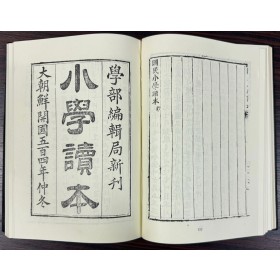 學部編輯局新刊
小學讀本
大朝鮮開國五百四年仲冬
國民小學讀本終